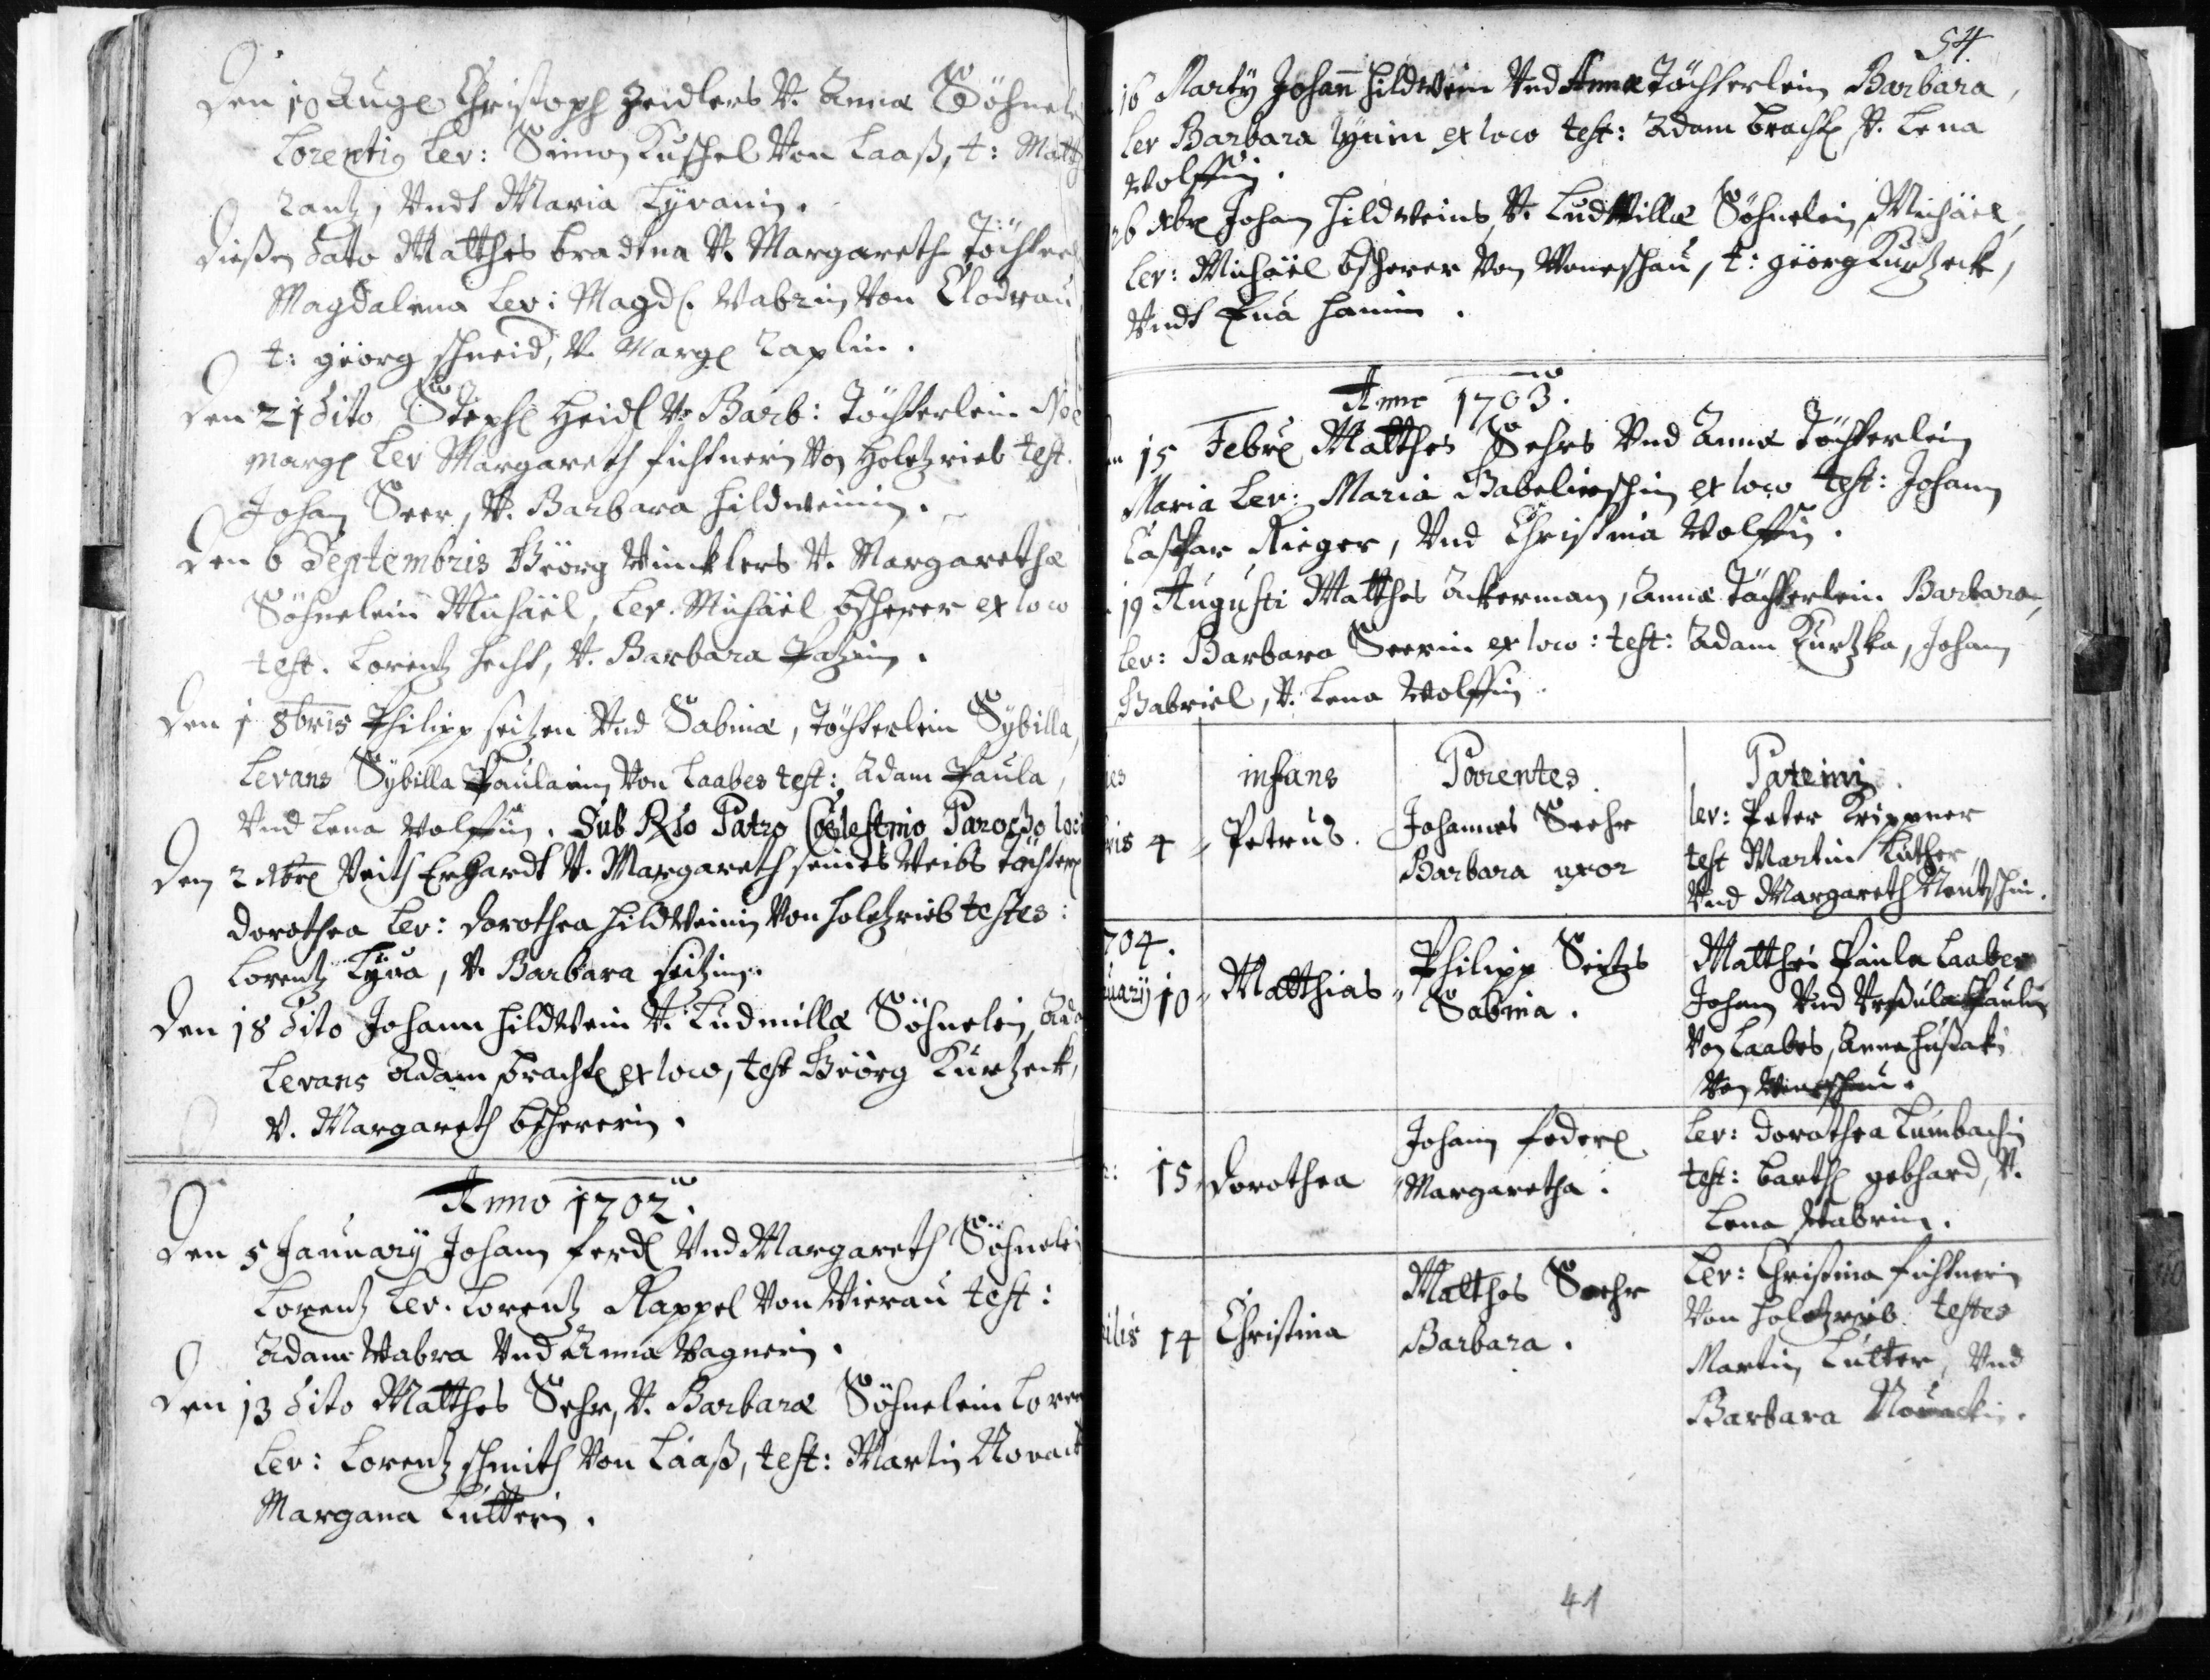 Den 10 Aug: Christoph Zeidlers V. Anna Söhnel
Lorentz Lev: Simon Kuschel Von Laaß, t: Matth
Zantz, Vndt Maria Lyvanin.
Dießen dato Matthes bradtna V. Margareth Töchter
Magdalena Lev: Magd. Wabrin Von Elodrau
t: geörg schneid, V. Marg: Zaplin.
Den 21 dito Steph: Heidl V. Barb: Töchterlein
Marg: Lev Margareth fichtnerin Von Holetzrieb test.
Johan Seer, V. Barbara hildweinin.
Den 6 Septembris Geörg Wincklers V. Margaretha
Söhnelein Michäel, Lev. Michäel bscherer ex loco
test. Lorentz hecht, V. Barbara
Den 1 8bris Philipp seitzen Vnd Sabina, Töchterlein Sybilla,
Levans Sybilla Paulain Von Laabes test: Adam Paula,
Vnd Lena Wolffin. Sub Rdo Patro Coelestino Parocho loci
Den 2 Veith Erhardt V. Margareth seines Weibs Töchter
Dorothea Lev: Dorothea hildweinin Von holetzrieb testes:
Lorentz Lyva, V. Barbara seitzin.
Den 18 dito Johann hildwein V. Ludmilla Söhnelein, Ada
Levans Adam bracht ex loco, test Geörg Kurtzeck,
V. Margareth bschererin.
Anno 1702.
Den 5 January Johann ferd Vnd Margareth Söhnelei
Lorentz Lev. Lorentz Kappel Von Wierau test:
Adam Wabra Vnd Anna Wagnerin.
Den 13 dito Matthes Sehr, V. Barbara Söhnelein Loren
Lev: Lorentz schmith Von Laaß, test: Martin Novack
Margana Lutterin.
54
16 Marty Johann hildwein Vnd Anna Töchterlein Barbara,
Lev Barbara ex loco test: Adam bracht V. Lena
Wolffin.
Johan hildweins, V. Ludmilla Söhnelein Michäel,
Lev: Michäel bscherer Von Woneschau, t: geörg Kurtzeck,
Vndt Eua
Anno 1703.
15 Febr Matthes Sehrs Vnd Anna Töchterlein
Maria Lev: Maria ex loco test: Johann
Caspar Rieger, Vnd Christina Wolffin.
19 Augusti Matthes Ackerman, Anna Töchterlein Barbara,
Lev: Barbara Seerin ex loco: test: Adam Kurtzka, Johann
Gabriel, V. Lena Wolffin.
infans Parentes Patrini
ris 4 Petrus. Johannes Seehr Lev: Peter Krippner
Barbara uxor test Martin Luther,
Vnd Margareth
704.
uary 10 Matthias Philipp Seitzs Matthes Paula Laabes
Sabina. Johann Vnd Vrsula Paulin
Von Laabes, Anna
Von
15 Dorothea Johann feder Lev: Dorothea Lumbachin
Margaretha. test: Barth: gebhard, V.
Lena Wabrin.
ilis 14 Christina Matthes Seehr Lev: Christina fichtnerin
Barbara. Von holetzrieb testes
Martin Lutter, Vnd
Barbara Novackin.
41